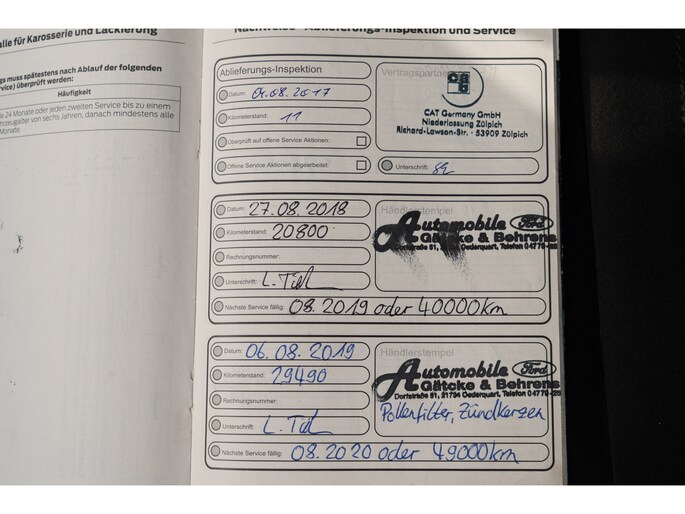 alle für Karosserie und Lackierung
gs muss spätestens nach Ablauf der folgenden
rvice) überprüft werden:
Häufigkeit
le 24 Monate oder jeden zweiten Service bis zu einem
hrzeugalter von sechs Jahren, danach mindestens alle
Monate.
Nachweise - Ablieferungs-Inspektion und Service
Ablieferungs-Inspektion
Datum: 01.08.2017
Kilometerstand: 11
Überprüft auf offene Service Aktionen:
Offene Service Aktionen abgearbeitet:
Vertragspartner
CAT Germany GmbH
Niederlassung Zülpich
Richard-Lawson-Str. · 53909 Zülpich
Unterschrift:
Datum: 27.08.2018
Kilometerstand: 20800
Rechnungsnummer:
Unterschrift:
Nächste Service fällig: 08.2019 oder 40000km
Händlerstempel
Automobile Ford
Gätcke & Behrens
Dorfstraße 51, 21734 Oederquart, Telefon 04779-25
Datum: 06.08.2019
Kilometerstand: 29490
Rechnungsnummer:
Unterschrift:
Nächste Service fällig: 08.2020 oder 49000km
Händlerstempel
Automobile Ford
Gätcke & Behrens
Dorfstraße 51, 21734 Oederquart, Telefon 04779-25
Pollenfilter, Zündkerzen